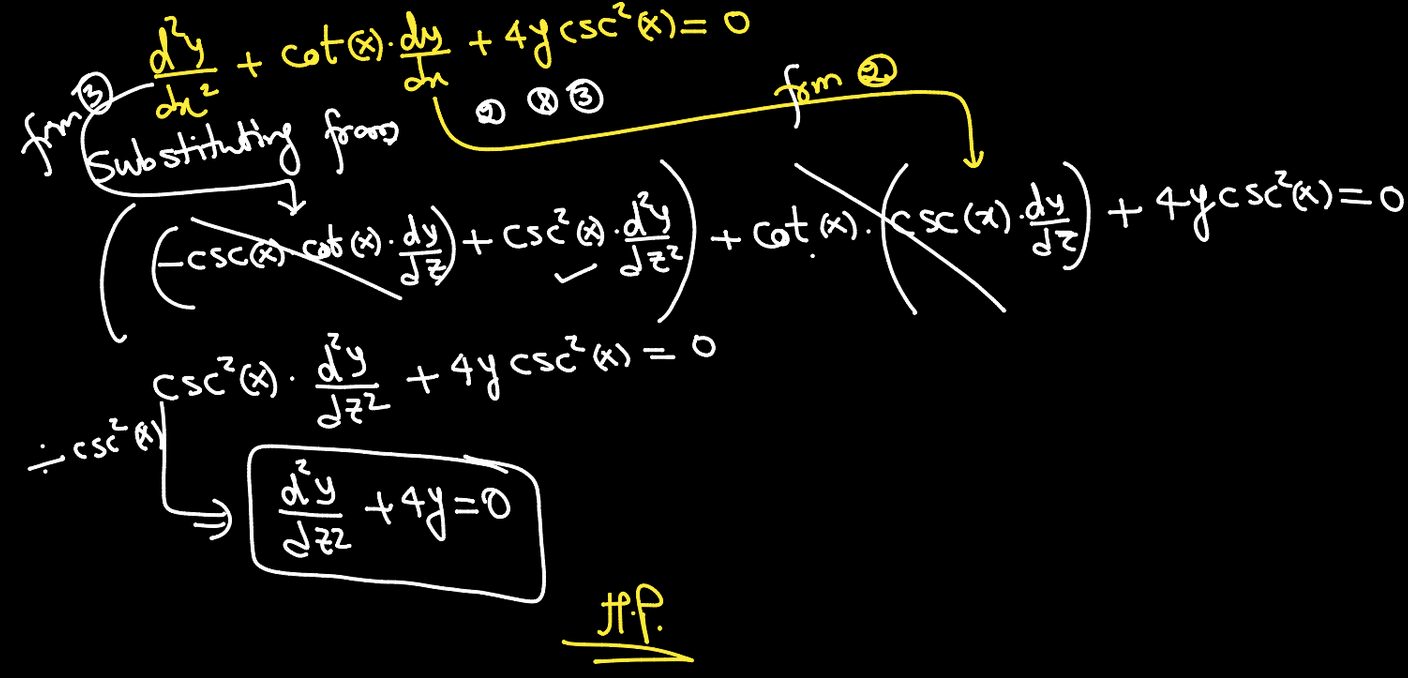 d²y/dx² + cot(x)·dy/dx + 4y csc²(x) = 0
from ③
from ②
Substituting from ② & ③
((-csc(x) cot(x)·dy/dz) + csc²(x)·d²y/dz²) + cot(x)·(csc(x)·dy/dz) + 4y csc²(x) = 0
csc²(x)·d²y/dz² + 4y csc²(x) = 0
÷ csc²(x)
⇒ d²y/dz² + 4y = 0
H.P.